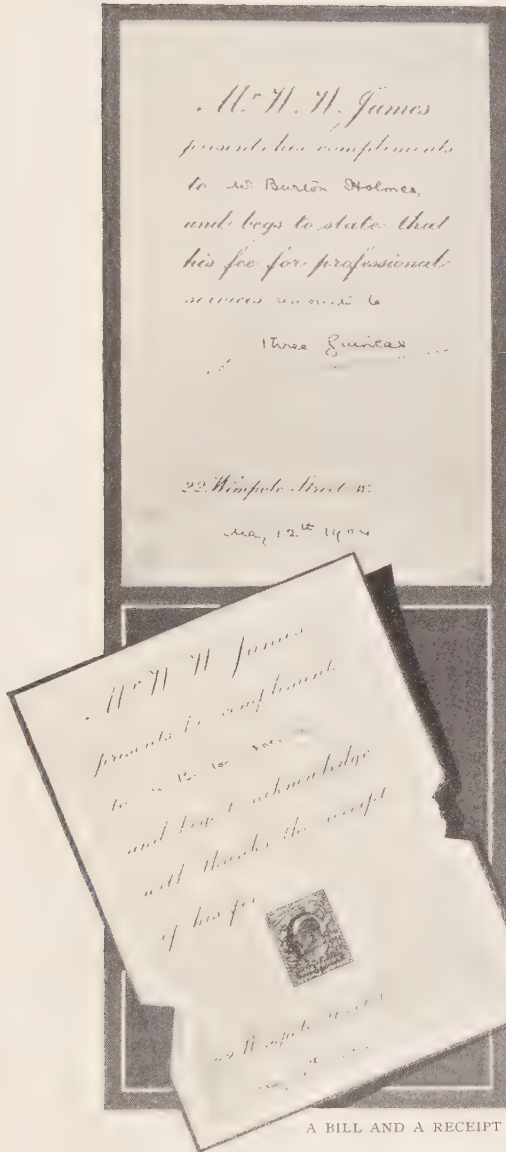 Mr W. W. James
presents his compliments
to Mr Burton Holmes,
and begs to state that
his fee for professional
services amounts to
three Guineas
22. Wimpole Street W.
May 12th 1904
Mr W W James
presents his compliments
to
and begs to acknowledge
with thanks the receipt
of his fee
22 Wimpole Street
A BILL AND A RECEIPT